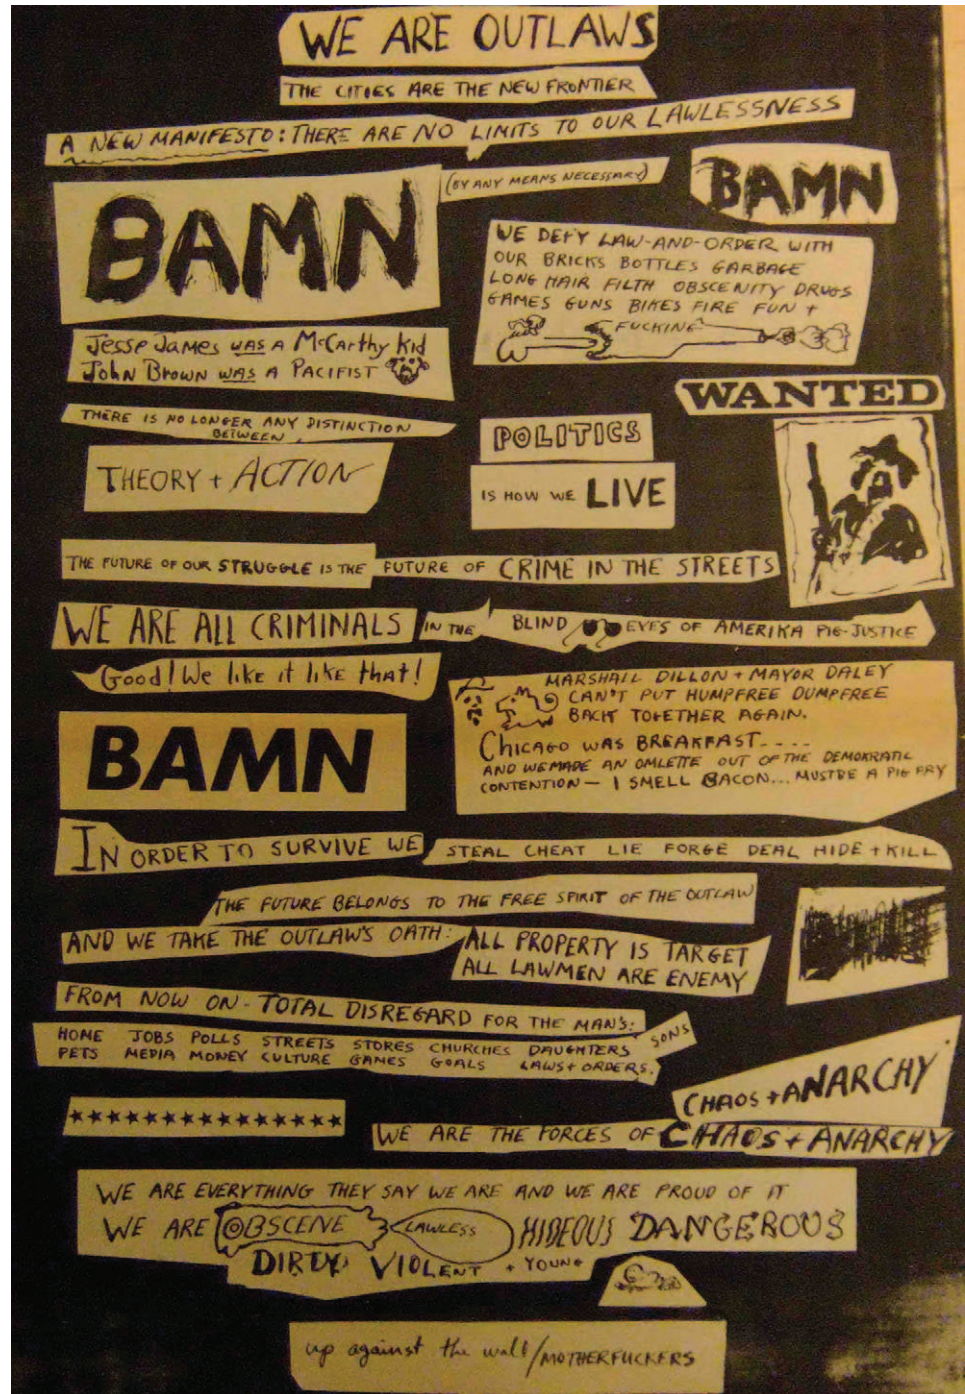 WE ARE OUTLAWS
THE CITIES ARE THE NEW FRONTIER
A NEW MANIFESTO: THERE ARE NO LIMITS TO OUR LAWLESSNESS
BAMN
(BY ANY MEANS NECESSARY)
BAMN
WE DEFY LAW-AND-ORDER WITH
OUR BRICKS BOTTLES GARBAGE
LONG HAIR FILTH OBSCENITY DRUGS
GAMES GUNS BIKES FIRE FUN +
FUCKING
Jesse James WAS A McCarthy Kid
John Brown WAS A PACIFIST
WANTED
THERE IS NO LONGER ANY DISTINCTION
BETWEEN
THEORY + ACTION
POLITICS
IS HOW WE LIVE
THE FUTURE OF OUR STRUGGLE IS THE FUTURE OF CRIME IN THE STREETS
WE ARE ALL CRIMINALS IN THE BLIND EYES OF AMERIKA PIG-JUSTICE
Good! We like it like that!
MARSHALL DILLON + MAYOR DALEY
CAN'T PUT HUMPFREE DUMPFREE
BACK TOGETHER AGAIN.
CHICAGO WAS BREAKFAST....
AND WE MADE AN OMLETTE OUT OF THE DEMOKRATIC
CONTENTION — I SMELL BACON... MUSTBE A PIG FRY
BAMN
IN ORDER TO SURVIVE WE STEAL CHEAT LIE FORGE DEAL HIDE + KILL
THE FUTURE BELONGS TO THE FREE SPIRIT OF THE OUTLAW
AND WE TAKE THE OUTLAW'S OATH:
ALL PROPERTY IS TARGET
ALL LAWMEN ARE ENEMY
FROM NOW ON - TOTAL DISREGARD FOR THE MAN'S:
HOME JOBS POLLS STREETS STORES CHURCHES DAUGHTERS SONS
PETS MEDIA MONEY CULTURE GAMES GOALS LAWS + ORDERS.
CHAOS + ANARCHY
★★★★★★★★★★★★★★★
WE ARE THE FORCES OF CHAOS + ANARCHY
WE ARE EVERYTHING THEY SAY WE ARE AND WE ARE PROUD OF IT
WE ARE OBSCENE LAWLESS HIDEOUS DANGEROUS
DIRTY VIOLENT + YOUNG
up against the wall/MOTHERFUCKERS